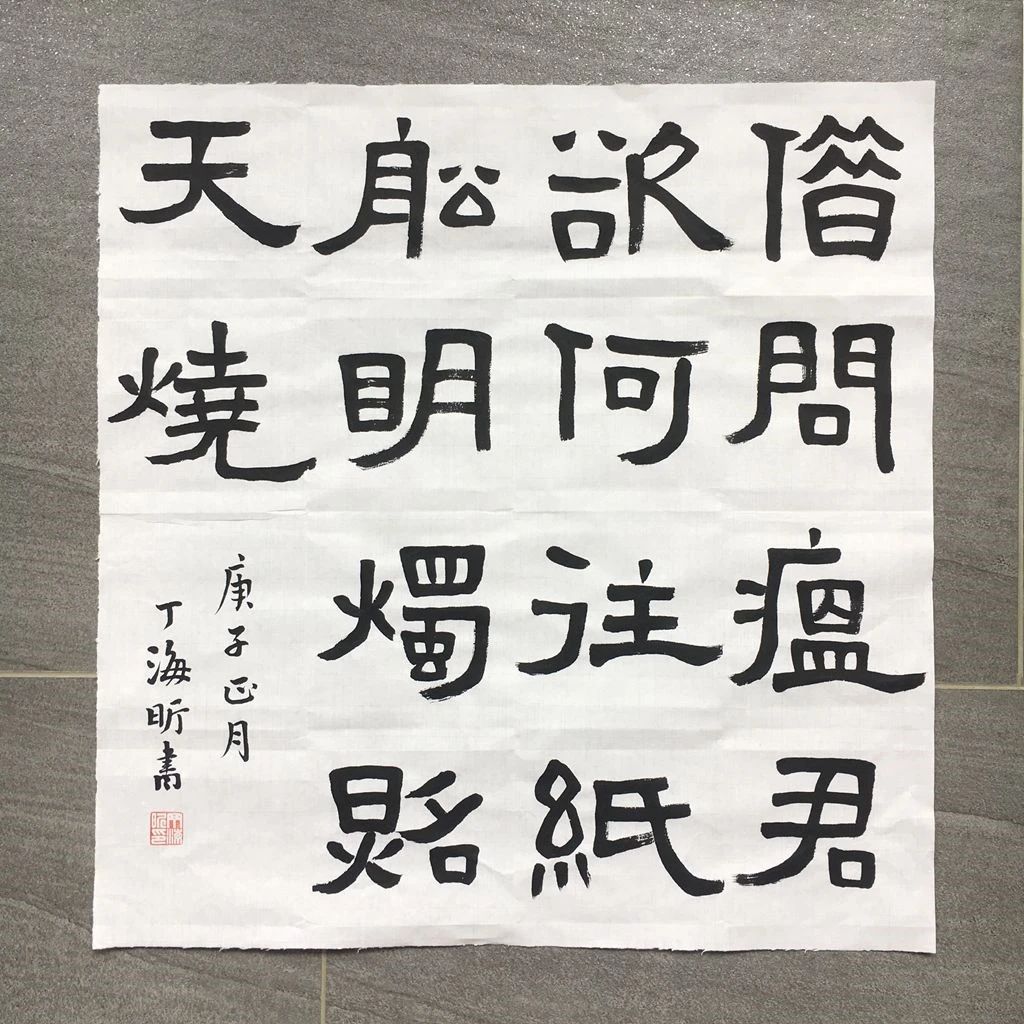 借問瘟君
欲何往紙
船明燭照
天燒
庚子正月
丁海昕書